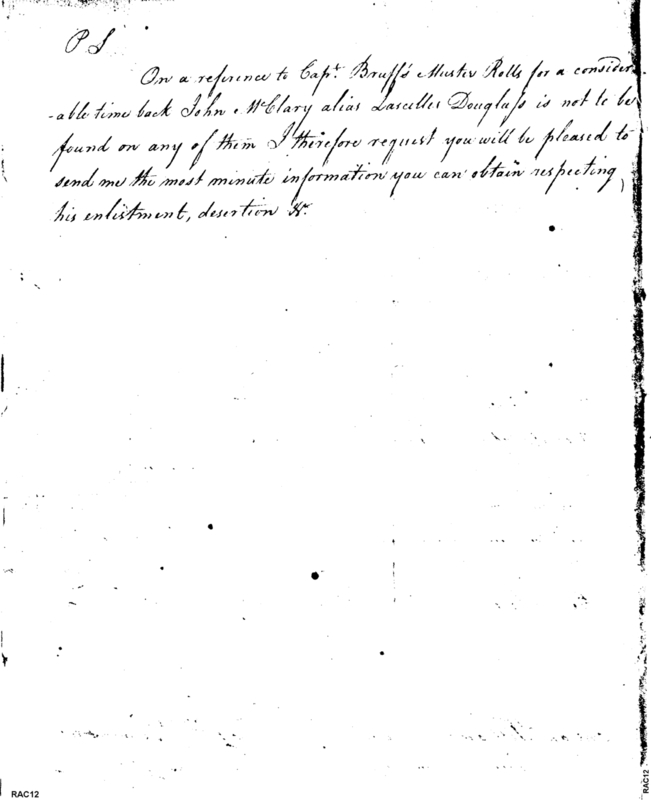 P S
On a reference to Capt. Bruff's Muster Rolls for a consider-
-able time back John McClary alias Lascelles Douglass is not to be
found on any of them I therefore request you will be pleased to
send me the most minute information you can obtain respecting
his enlistment, desertion &c.
RAC12
RAC12